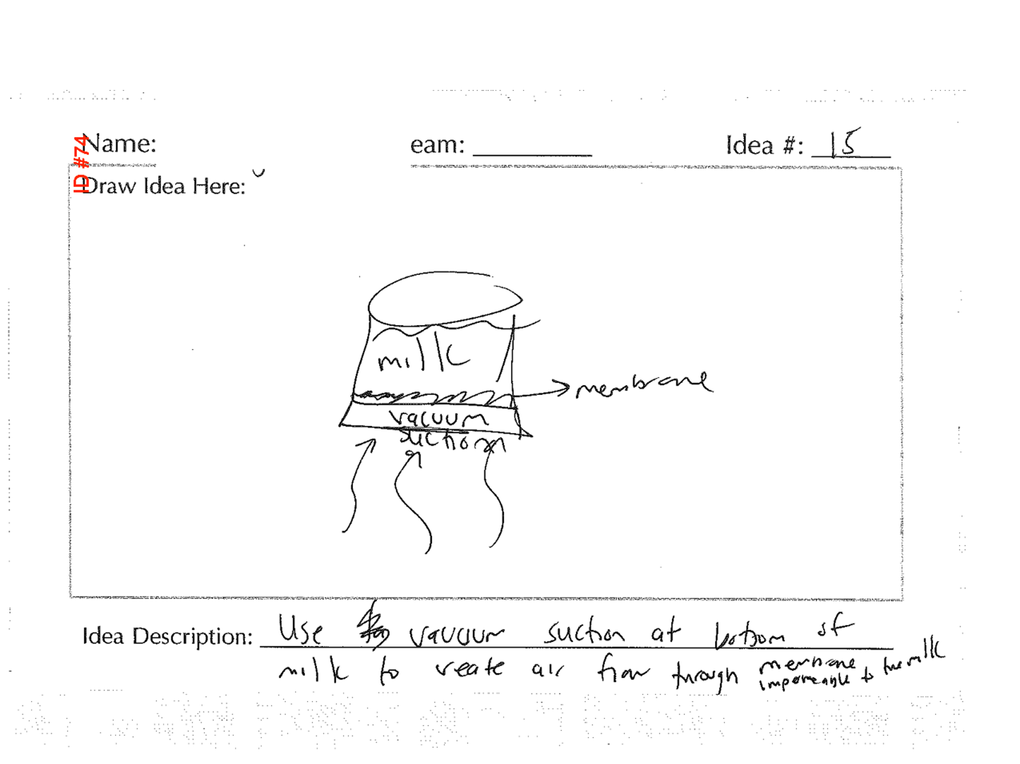 ID #74
Name:
eam:
Idea #: 15
Draw Idea Here:
milk
membrane
vacuum
suction
Idea Description: Use vacuum suction at bottom of
milk to create air flow through membrane
impermeable to the milk